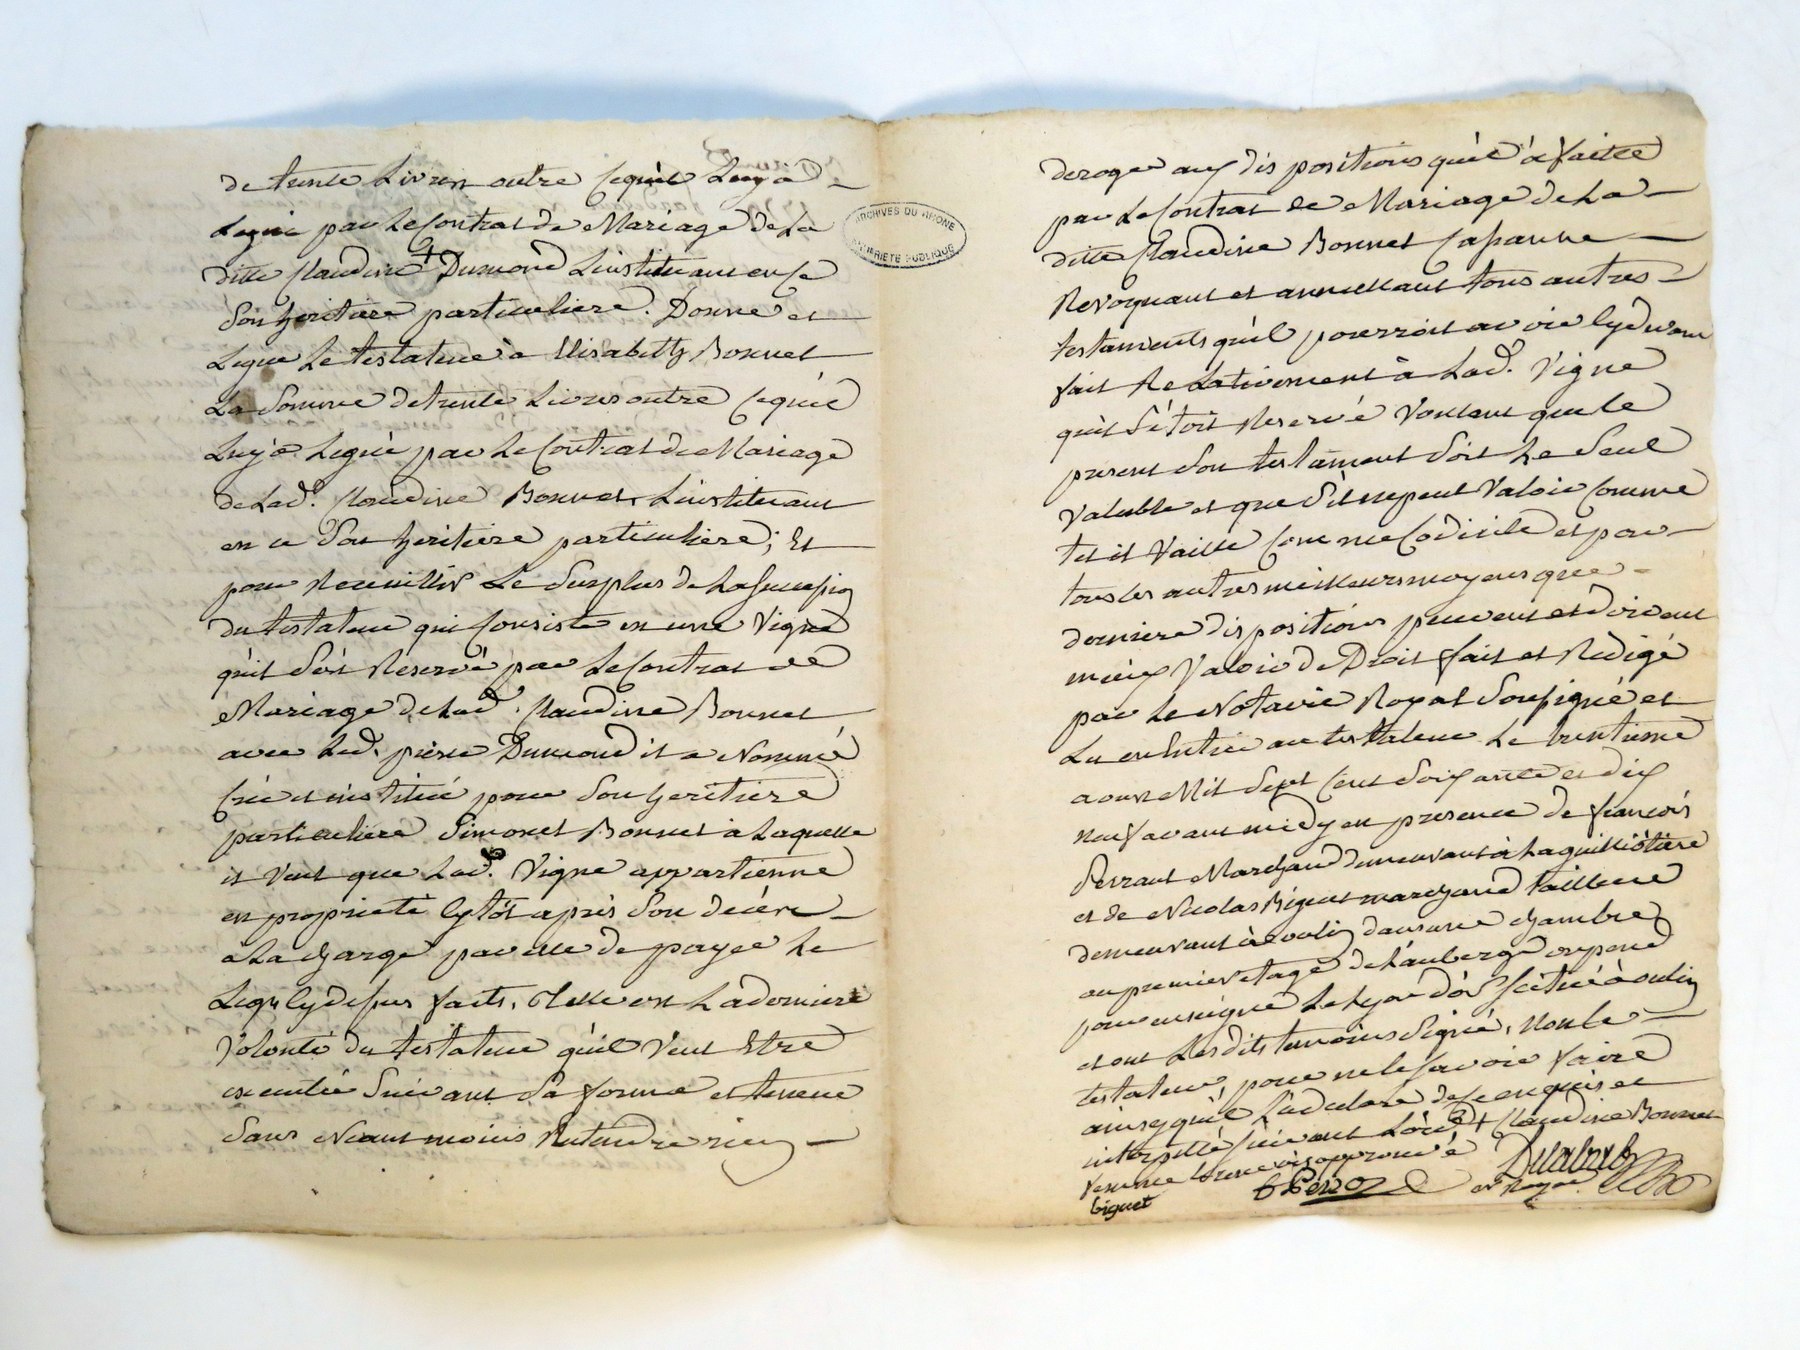 de trente Livres outre ce qu'il Luy a
Legué par Le Contrat de Mariage de La
ditte Claudine + Dumond L'instituant en ce
Son heritiere particuliere. Donne et
Legue Le testateur à Elisabeth Bonnet
La Somme de trente Livres outre ce qu'il
Luy a Legué par Le Contrat de Mariage
de Lad.e Claudine Bonnet, L'instituant
en ce Son heritiere particuliere; Et
pour Recueillir Le Surplus de La Succession
du testateur qui Consiste en une Vigne
qu'il S'est Reservé par Le Contrat de
Mariage de Lad.e Claudine Bonnet
avec Led. pierre Dumond il a Nommé
Créé et institué pour Son heritiere
particuliere Simonet Bonnet à Laquelle
il Veut que Lad.e Vigne appartienne
en proprieté sytôt après Son décès
a La charge par elle de payer Le
Legs cydessus faits. Telle est La derniere
Volonté du testateur qu'il Veut Etre
executée Suivant Sa forme et teneur
Sans Neantmoins Entendre rien
ARCHIVES DU RHONE
PROPRIETE PUBLIQUE
deroger aux dispositions qu'il a faittes
par Le Contrat de Mariage de La
ditte Claudine Bonnet
Revoquant et annullant tous autres
testaments qu'il pourroit avoir cydevant
fait Relativement à Lad.e Vigne
qu'il S'étoit Reservé Voulant que le
present Son testament Soit Le Seul
Valable et que S'il ne peut Valoir Comme
tel il Vaille Comme Codicile et par
tous les autres meilleurs moyens que
derniere dispositions peuvent et doivent
mieux Valoir de Droit fait et Redigé
par Le Notaire Royal Soussigné et
Lu en Entier au testateur Le trentieme
aoust Mil Sept Cent Soixante et dix
neuf avant midy en presence de francois
Perraut Marchand demeurant à La guilliotiere
et de Nicolas Biguet marchand tailleur
demeurant à oulin dans une chambre
au premier etage de L'auberge ou pend
pour enseigne Le Lyon d'or Scituée à oulin
et ont Lesdits temoins Signé, Non le
testateur, pour ne le Savoir faire
ainsy qu'il L'a declaré de ce enquis et
interpellé Suivant L'ord.ce + Claudine Bonnet
femme approuvé
biguet
Perro
Delabrub
n.re Royal